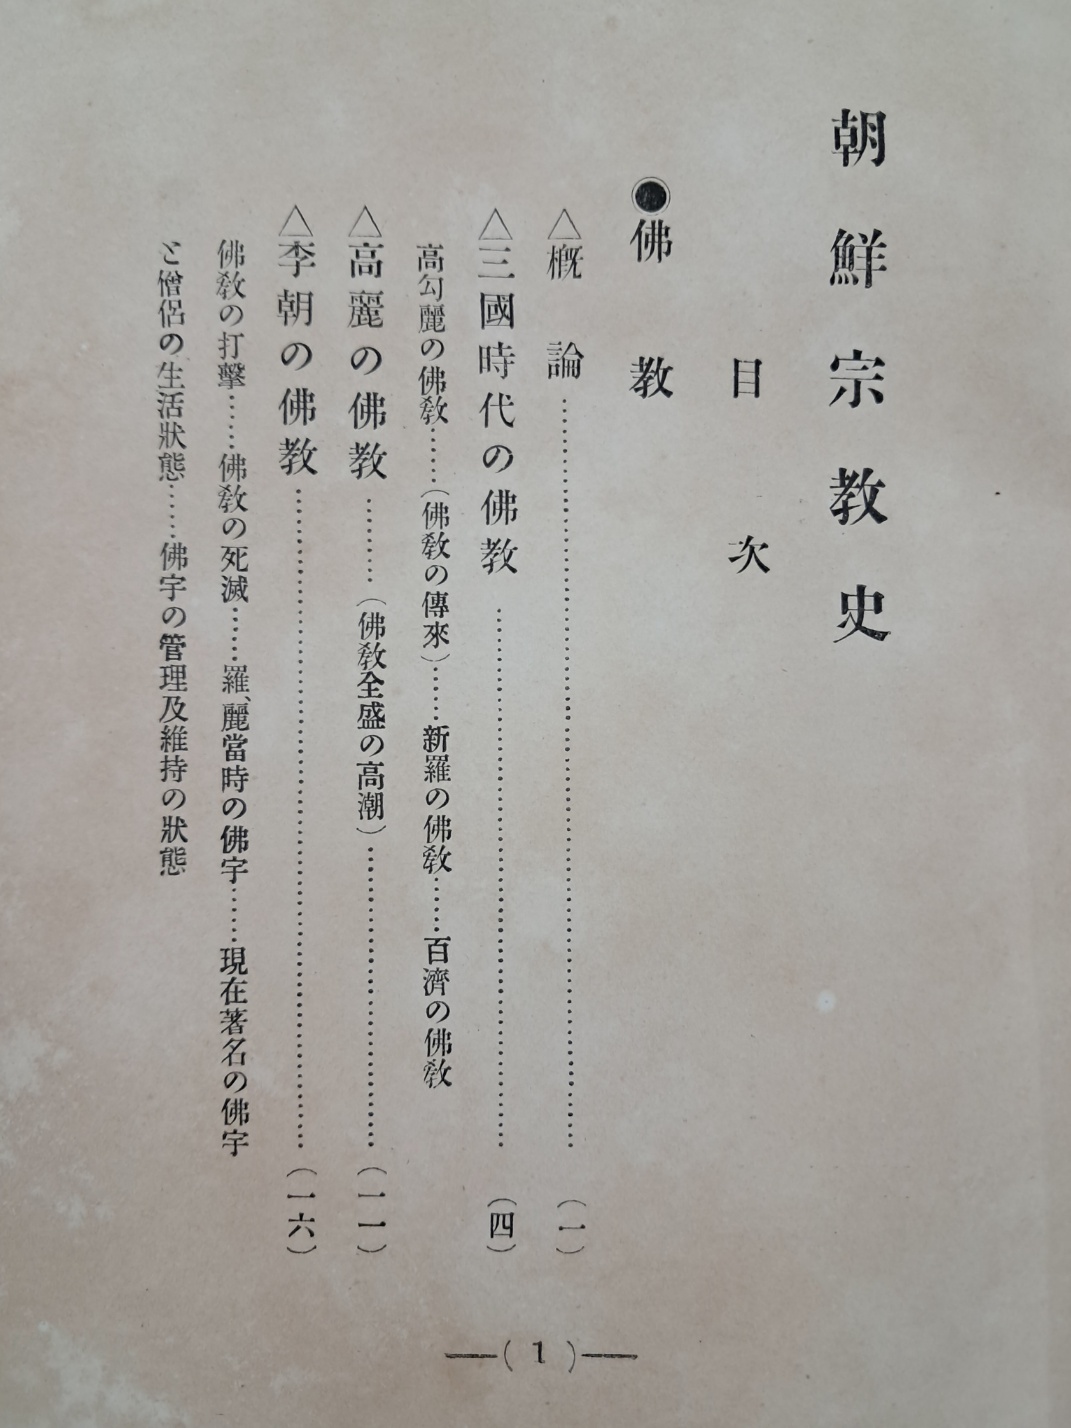 朝鮮宗教史
目次
◉佛教
△槪論……………………(一)
△三國時代の佛教……………………(四)
高勾麗の佛敎……(佛敎の傳來)……新羅の佛敎……百濟の佛敎
△高麗の佛教………(佛敎全盛の高潮)……………………(一一)
△李朝の佛教……………………(一六)
佛敎の打擊……佛敎の死滅……羅、麗當時の佛宇……現在著名の佛宇
と僧侶の生活狀態……佛宇の管理及維持の狀態
—( 1 )—